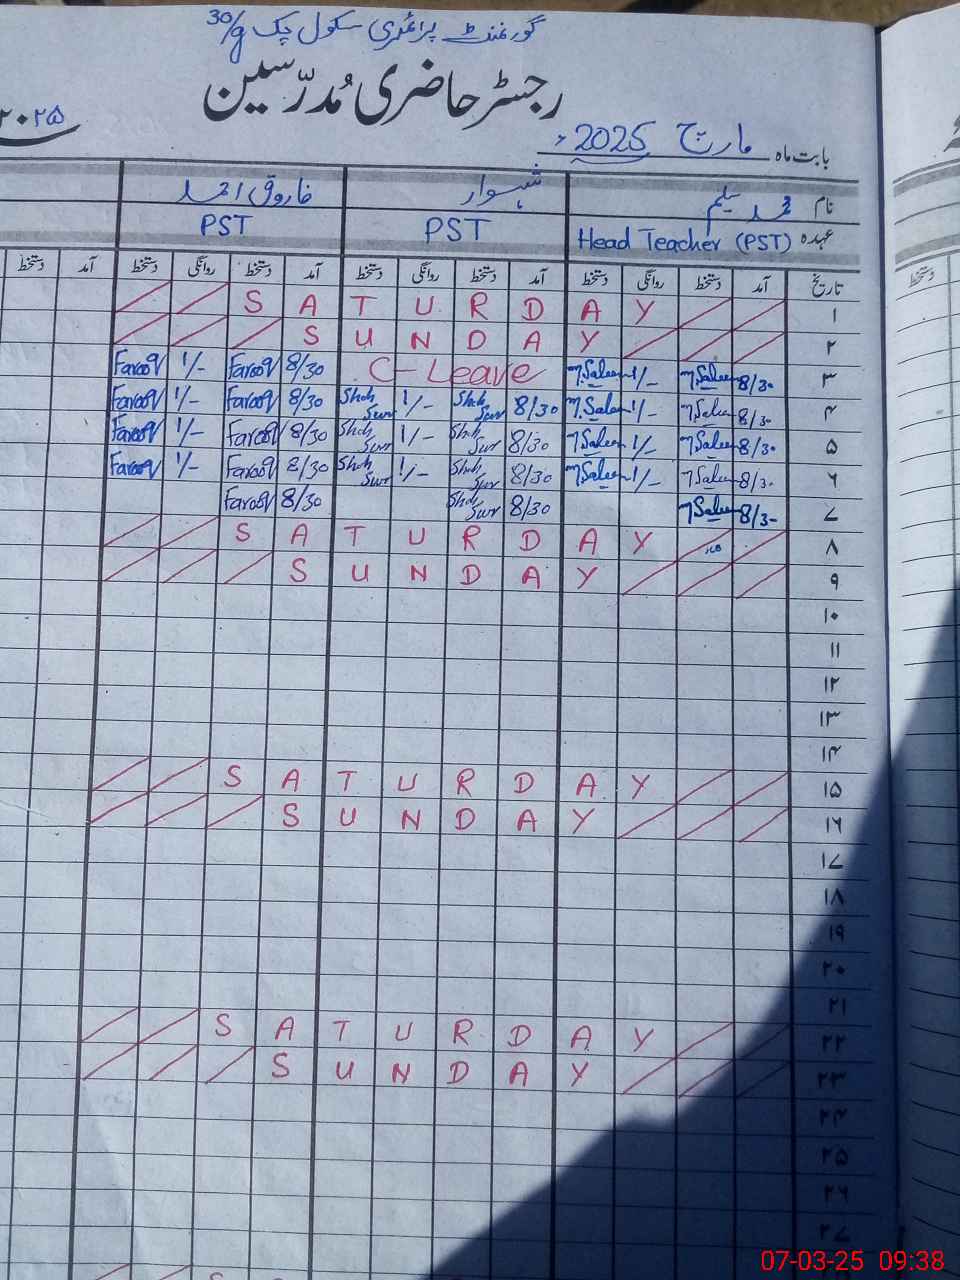 گورنمنٹ پرائمری سکول چک 30/g
رجسٹر حاضری مُدرّسین
بابت ماہ مارچ 2025ء
۲۰۲۵
نام محمد سلیم شہسوار فاروق احمد
عہدہ Head Teacher (PST) PST PST
تاریخ آمد دستخط روانگی دستخط آمد دستخط روانگی دستخط آمد دستخط روانگی دستخط آمد دستخط
۱ SATURDAY
۲ SUNDAY
۳ 8/30 M.Saleem 1/- M.Saleem C-Leave 8/30 Farooq 1/- Farooq
۴ 8/30 M.Saleem 1/- M.Saleem 8/30 Shah Swr 1/- Shah Swr 8/30 Farooq 1/- Farooq
۵ 8/30 M.Saleem 1/- M.Saleem 8/30 Shah Swr 1/- Shah Swr 8/30 Farooq 1/- Farooq
۶ 8/30 M.Saleem 1/- M.Saleem 8/30 Shah Swr 1/- Shah Swr 8/30 Farooq 1/- Farooq
۷ 8/30 M.Saleem 8/30 Shah Swr 8/30 Farooq
۸ SATURDAY
۹ SUNDAY
۱۰
۱۱
۱۲
۱۳
۱۴
۱۵ SATURDAY
۱۶ SUNDAY
۱۷
۱۸
۱۹
۲۰
۲۱
۲۲ SATURDAY
۲۳ SUNDAY
۲۴
۲۵
۲۶
۲۷
دستخط
07-03-25 09:38